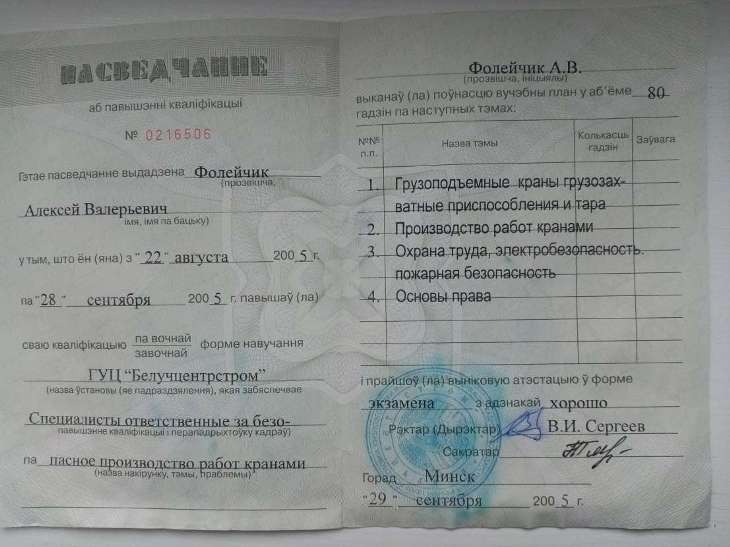 ПАСВЕДЧАННЕ
аб павышэнні кваліфікацыі
№ 0216506
Гэтае пасведчанне выдадзена Фолейчик
(прозвішча,
Алексей Валерьевич
імя, імя па бацьку)
у тым, што ён (яна) з "22" августа 2005 г.
па "28" сентября 2005 г. павышаў (ла)
сваю кваліфікацыю па вочнай форме навучання
завочнай
ГУЦ "Белучцентрстром"
(назва ўстановы (яе падраздзялення), якая забяспечвае
Специалисты ответственные за безо-
павышэнне кваліфікацыі і перападрыхтоўку кадраў)
па пасное производство работ кранами
(назва накірунку, тэмы, праблемы)
Фолейчик А.В.
(прозвішча, ініцыялы)
выканаў (ла) поўнасцю вучэбны план у аб'ёме 80
гадзін па наступных тэмах:
№№ п.п. Назва тэмы Колькасць гадзін Заўвага
1. Грузоподъемные краны грузозах-
ватные приспособления и тара
2. Производство работ кранами
3. Охрана труда, электробезопасность.
пожарная безопасность
4. Основы права
і прайшоў (ла) выніковую атэстацыю ў форме
экзамена з адзнакай хорошо
Рэктар (Дырэктар) В.И. Сергеев
Сакратар
Горад Минск
"29" сентября 2005 г.